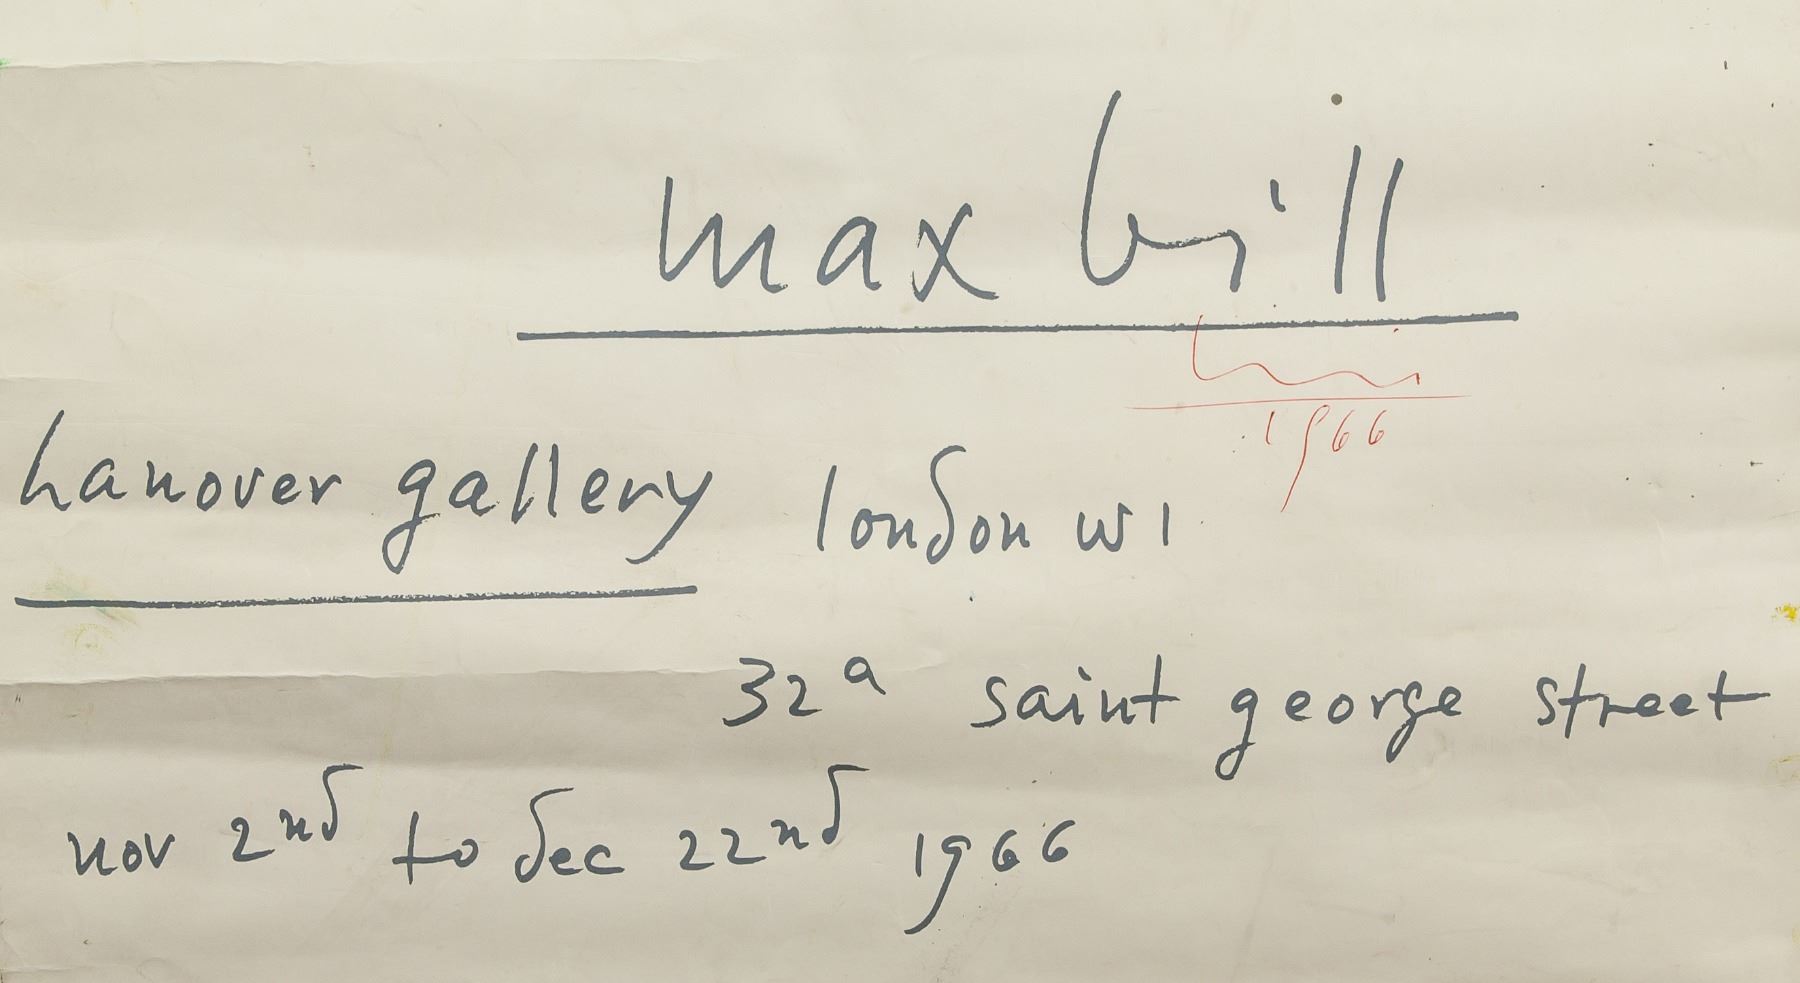 max bill
1966
hanover gallery london w1
32a saint george street
nov 2nd to dec 22nd 1966